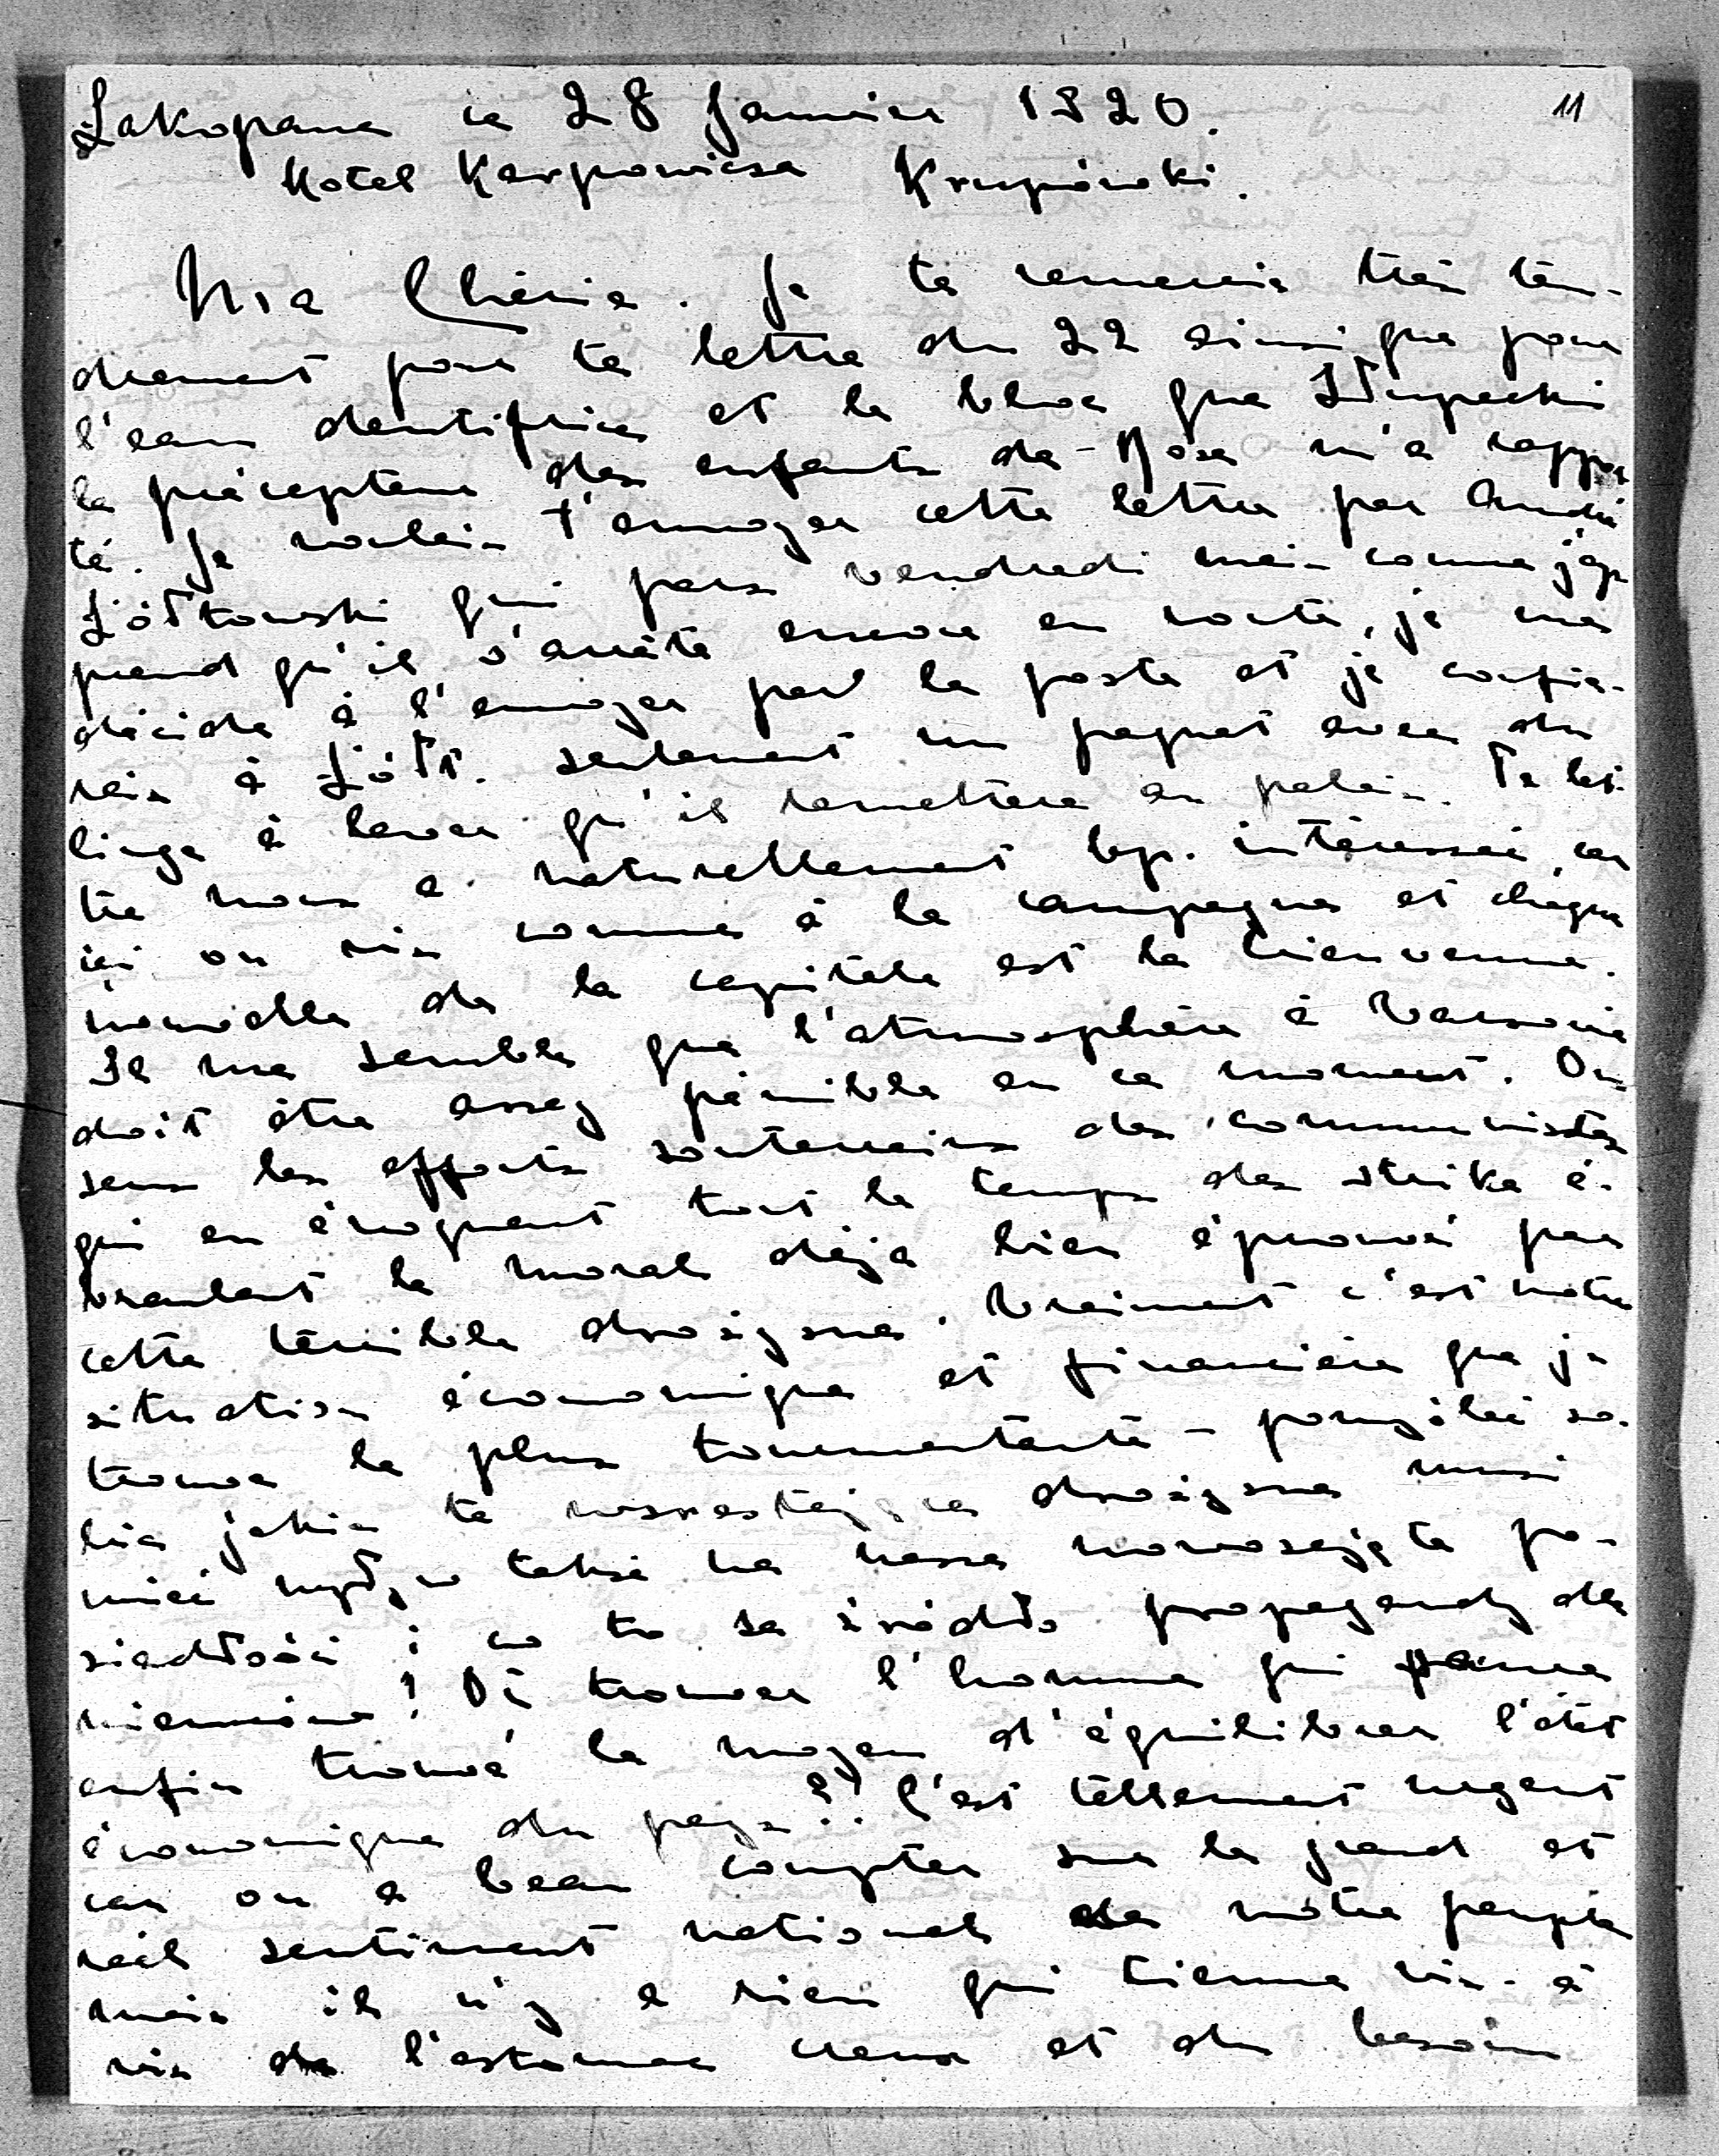 Zakopane ce 28 Janvier 1920. 11
Hotel Karpowicza Krupówki.
Ma Chérie. Je te remercie très ten-
drement pour ta lettre du 22 ainsi que pour
l'eau dentifrice et la blouse que Słupecki
le précepteur des enfants de Róża m'a rappor
té. Je voulais t'envoyer cette lettre par André
Żółtowski qui part vendredi mais comme j'ap
prend qu'il s'arrête encore en route, je me
décide à l'envoyer par la poste et je confie-
rais à Żółt. seulement un paquet avec du
linge à laver qu'il remettera au palais. Ta let-
tre nous a naturellement bp. intéressée, car
ici on vis comme à la campagne et chaque
nouvelle de la capitale est la bienvenue.
Il me semble que l'atmosphère à Varsovie
doit être assez pénible en ce moment. On
sens les efforts souterrains des communistes
qui en évoquent tout le temps des strike é-
branlent le moral déja bien éprouvé par
cette terrible drożyzna. Vraiment c'est notre
situation économique et financière que je
trouve la plus tourmentante – pomyśleć so-
bie jakie ta wzrastająca drożyzna musi
mieć wpływ także na nasze nowozajęte po-
siadłości i co to za źródło propagandy dla
niemców! Où trouver l'homme qui
enfin trouvé le moyen d'équilibrer l'état
économique du pays?! C'est tellement urgent
car on a beau compter sur le grand et
réel sentiment national de nôtre peuple
mais il n'y a rien qui tienne vis-à
vis de l'estomac creux et du besoin